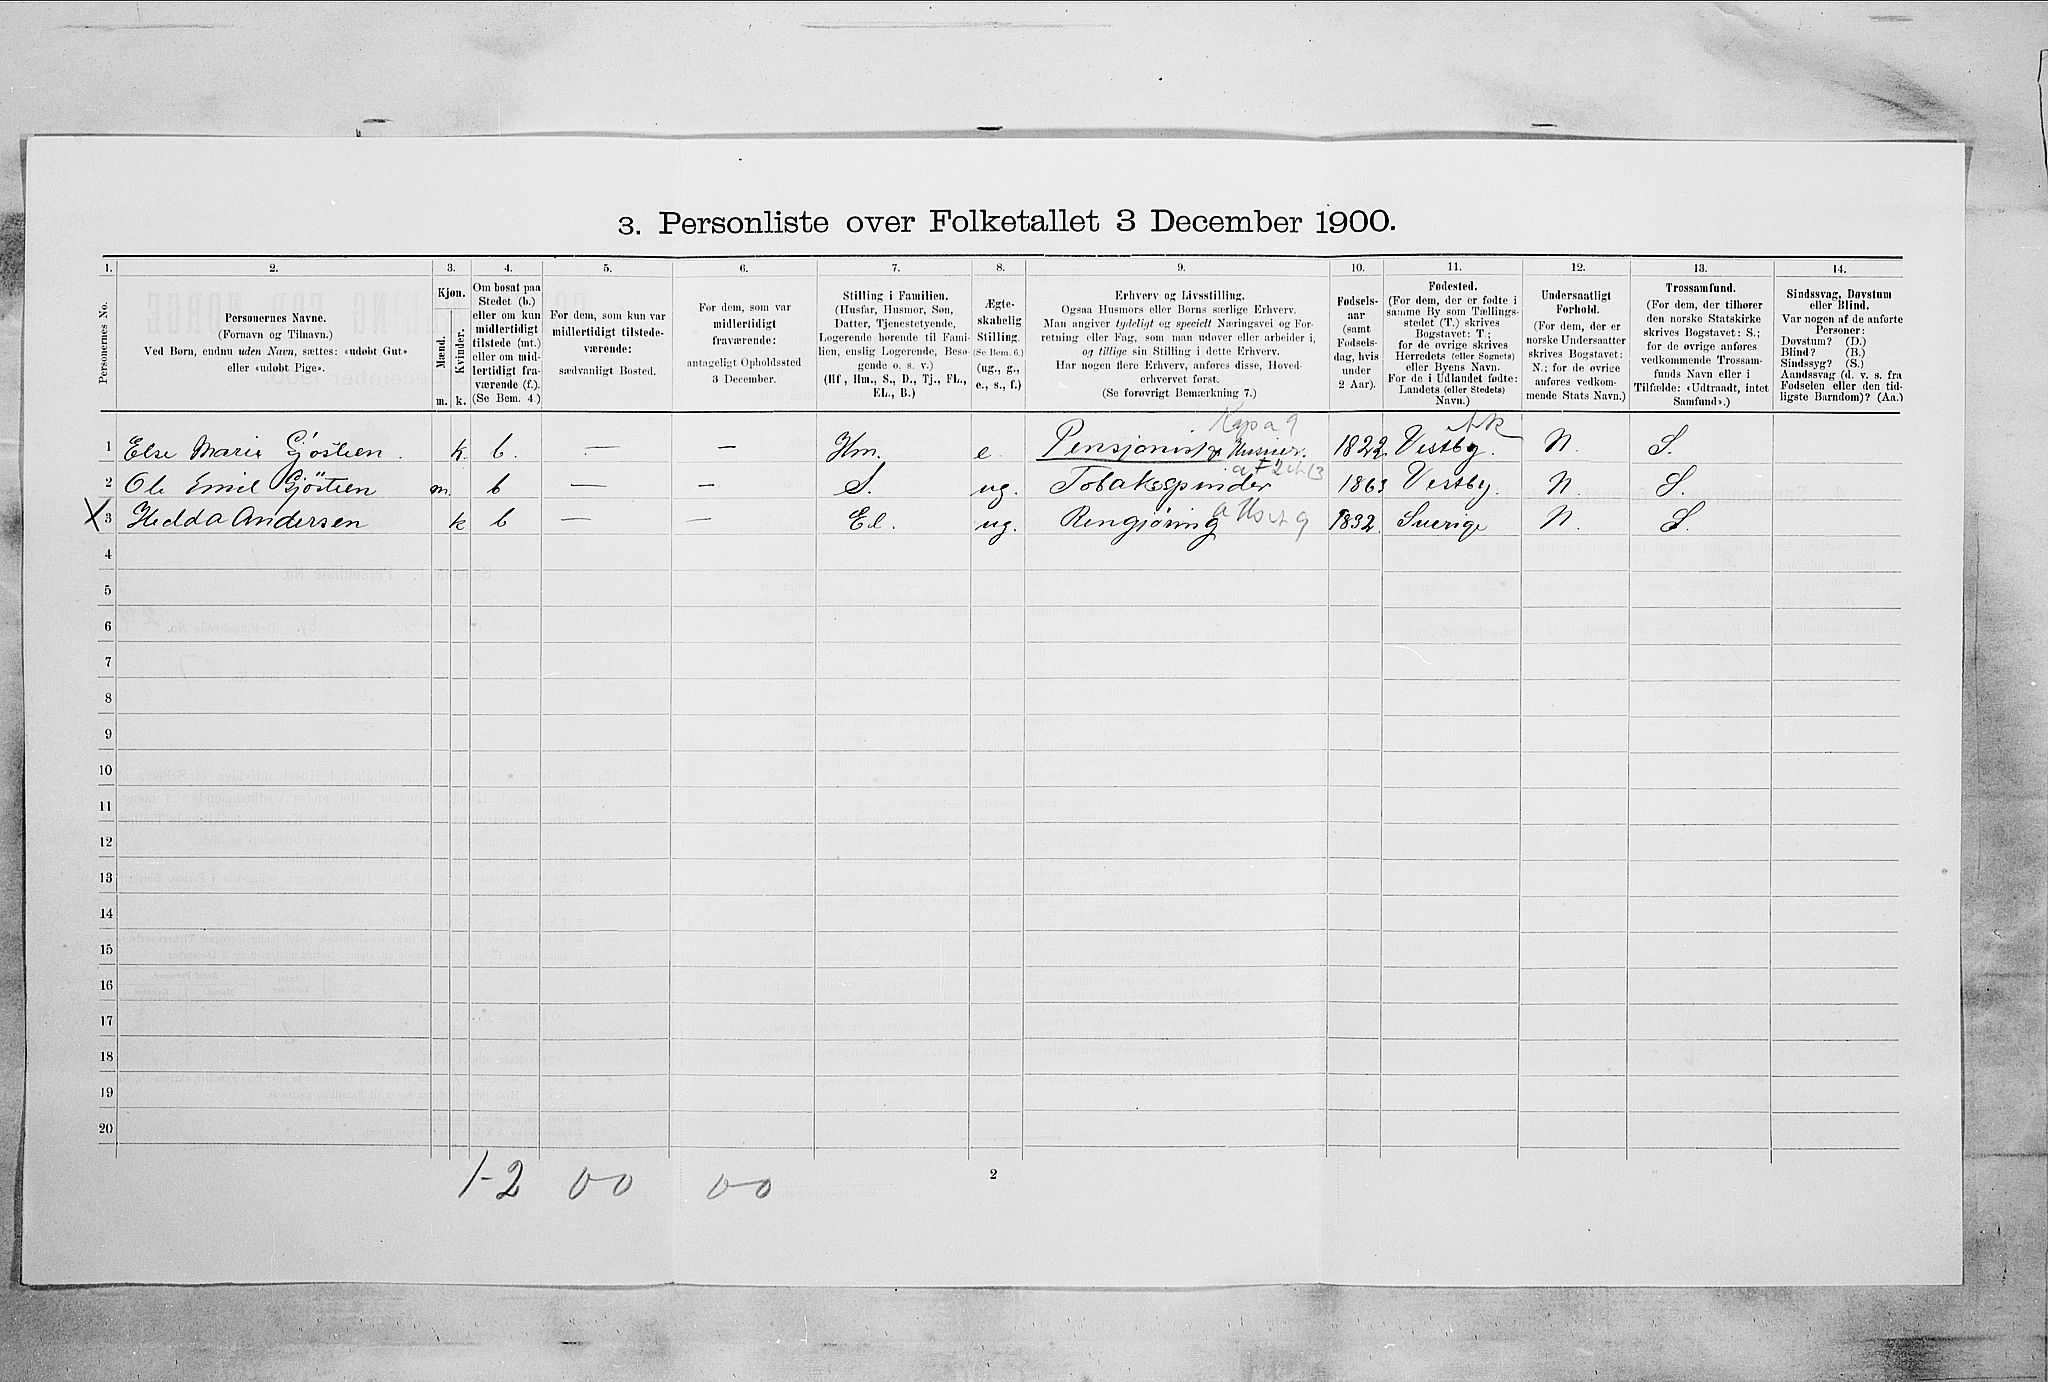 3. Personliste over Folketallet 3 December 1900.
1. 2. 3. 4. 5. 6. 7. 8. 9. 10. 11. 12. 13. 14.
Personernes No.
Personernes Navne.
(Fornavn og Tilnavn.)
Ved Børn, endnu uden Navn, sættes: «udøbt Gut»
eller «udøbt Pige».
Kjøn.
Mænd.
Kvinder.
m. k.
Om bosat paa
Stedet (b.)
eller om kun
midlertidigt
tilstede (mt.)
eller om mid-
lertidigt fra-
værende (f.).
(Se Bem. 4.)
For dem, som kun var
midlertidigt tilstede-
værende:
sædvanligt Bosted.
For dem, som var
midlertidigt
fraværende:
antageligt Opholdssted
3 December.
Stilling i Familien.
(Husfar, Husmor, Søn,
Datter, Tjenestetyende,
Logerende hørende til Fami-
lien, enslig Logerende, Besø-
gende o. s. v.)
(Hf., Hm., S., D., Tj., FL.,
EL., B.)
Ægte-
skabelig
Stilling.
(Se Bem. 6.)
(ug., g.,
e., s., f.)
Erhverv og Livsstilling.
Ogsaa Husmors eller Børns særlige Erhverv.
Man angiver tydeligt og specielt Næringsvei og For-
retning eller Fag, som man udøver eller arbeider i,
og tillige sin Stilling i dette Erhverv.
Har nogen flere Erhverv, anføres disse, Hoved-
erhvervet først.
(Se forøvrigt Bemærkning 7.)
Fødsels-
aar
(samt
Fødsels-
dag, hvis
under
2 Aar).
Fødested.
(For dem, der er fødte i
samme By som Tællings-
stedet (T.) skrives
Bogstavet: T;
for de øvrige skrives
Herredets (eller Sognets)
eller Byens Navn.
For de i Udlandet fødte:
Landets (eller Stedets)
Navn.)
Undersaatligt
Forhold.
(For dem, der er
norske Undersaatter
skrives Bogstavet:
N.; for de øvrige
anføres vedkom-
mende Stats Navn.)
Trossamfund.
(For dem, der tilhører
den norske Statskirke
skrives Bogstavet: S.;
for de øvrige anføres
vedkommende Trossam-
funds Navn eller i
Tilfælde: «Udtraadt, intet
Samfund».)
Sindssvag, Døvstum
eller Blind.
Var nogen af de anførte
Personer:
Døvstum? (D.)
Blind? (B.)
Sindssyg? (S.)
Aandssvag (d. v. s. fra
Fødselen eller den tid-
ligste Barndom)? (Aa.)
1 Else Marie Gjöstien. k. b. — — Hm. e. Pensjonist 1822 Vestby. N. S.
2 Ole Emil Gjöstien m. b — — S. ug. Tobakspinder 1863 Vestby. N. S.
X 3 Hedda Andersen k b — — El. ug. Rengjøring 1832. Sverige N. S.
4
5
6
7
8
9
10
11
12
13
14
15
16
17
18
19
20
1-2 0-0 0-0
2